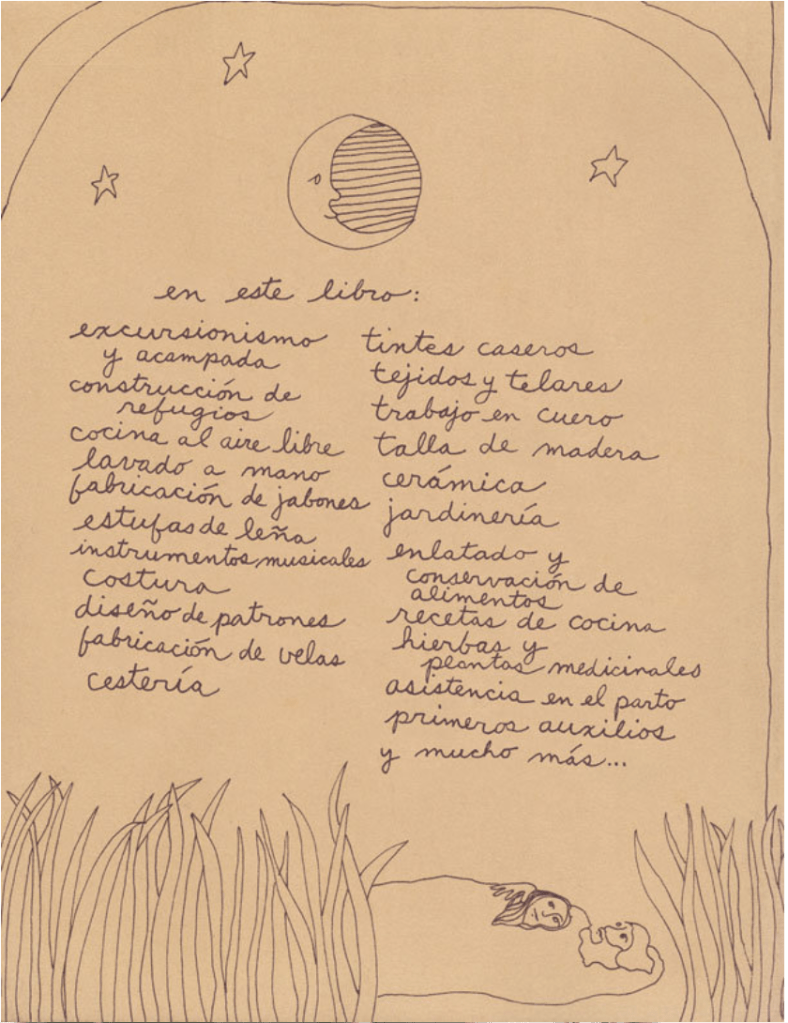 en este libro:
excursionismo
y acampada
construcción de
refugios
cocina al aire libre
lavado a mano
fabricación de jabones
estufas de leña
instrumentos musicales
costura
diseño de patrones
fabricación de velas
cestería
tintes caseros
tejidos y telares
trabajo en cuero
talla de madera
cerámica
jardinería
enlatado y
conservación de
alimentos
recetas de cocina
hierbas y
plantas medicinales
asistencia en el parto
primeros auxilios
y mucho más...